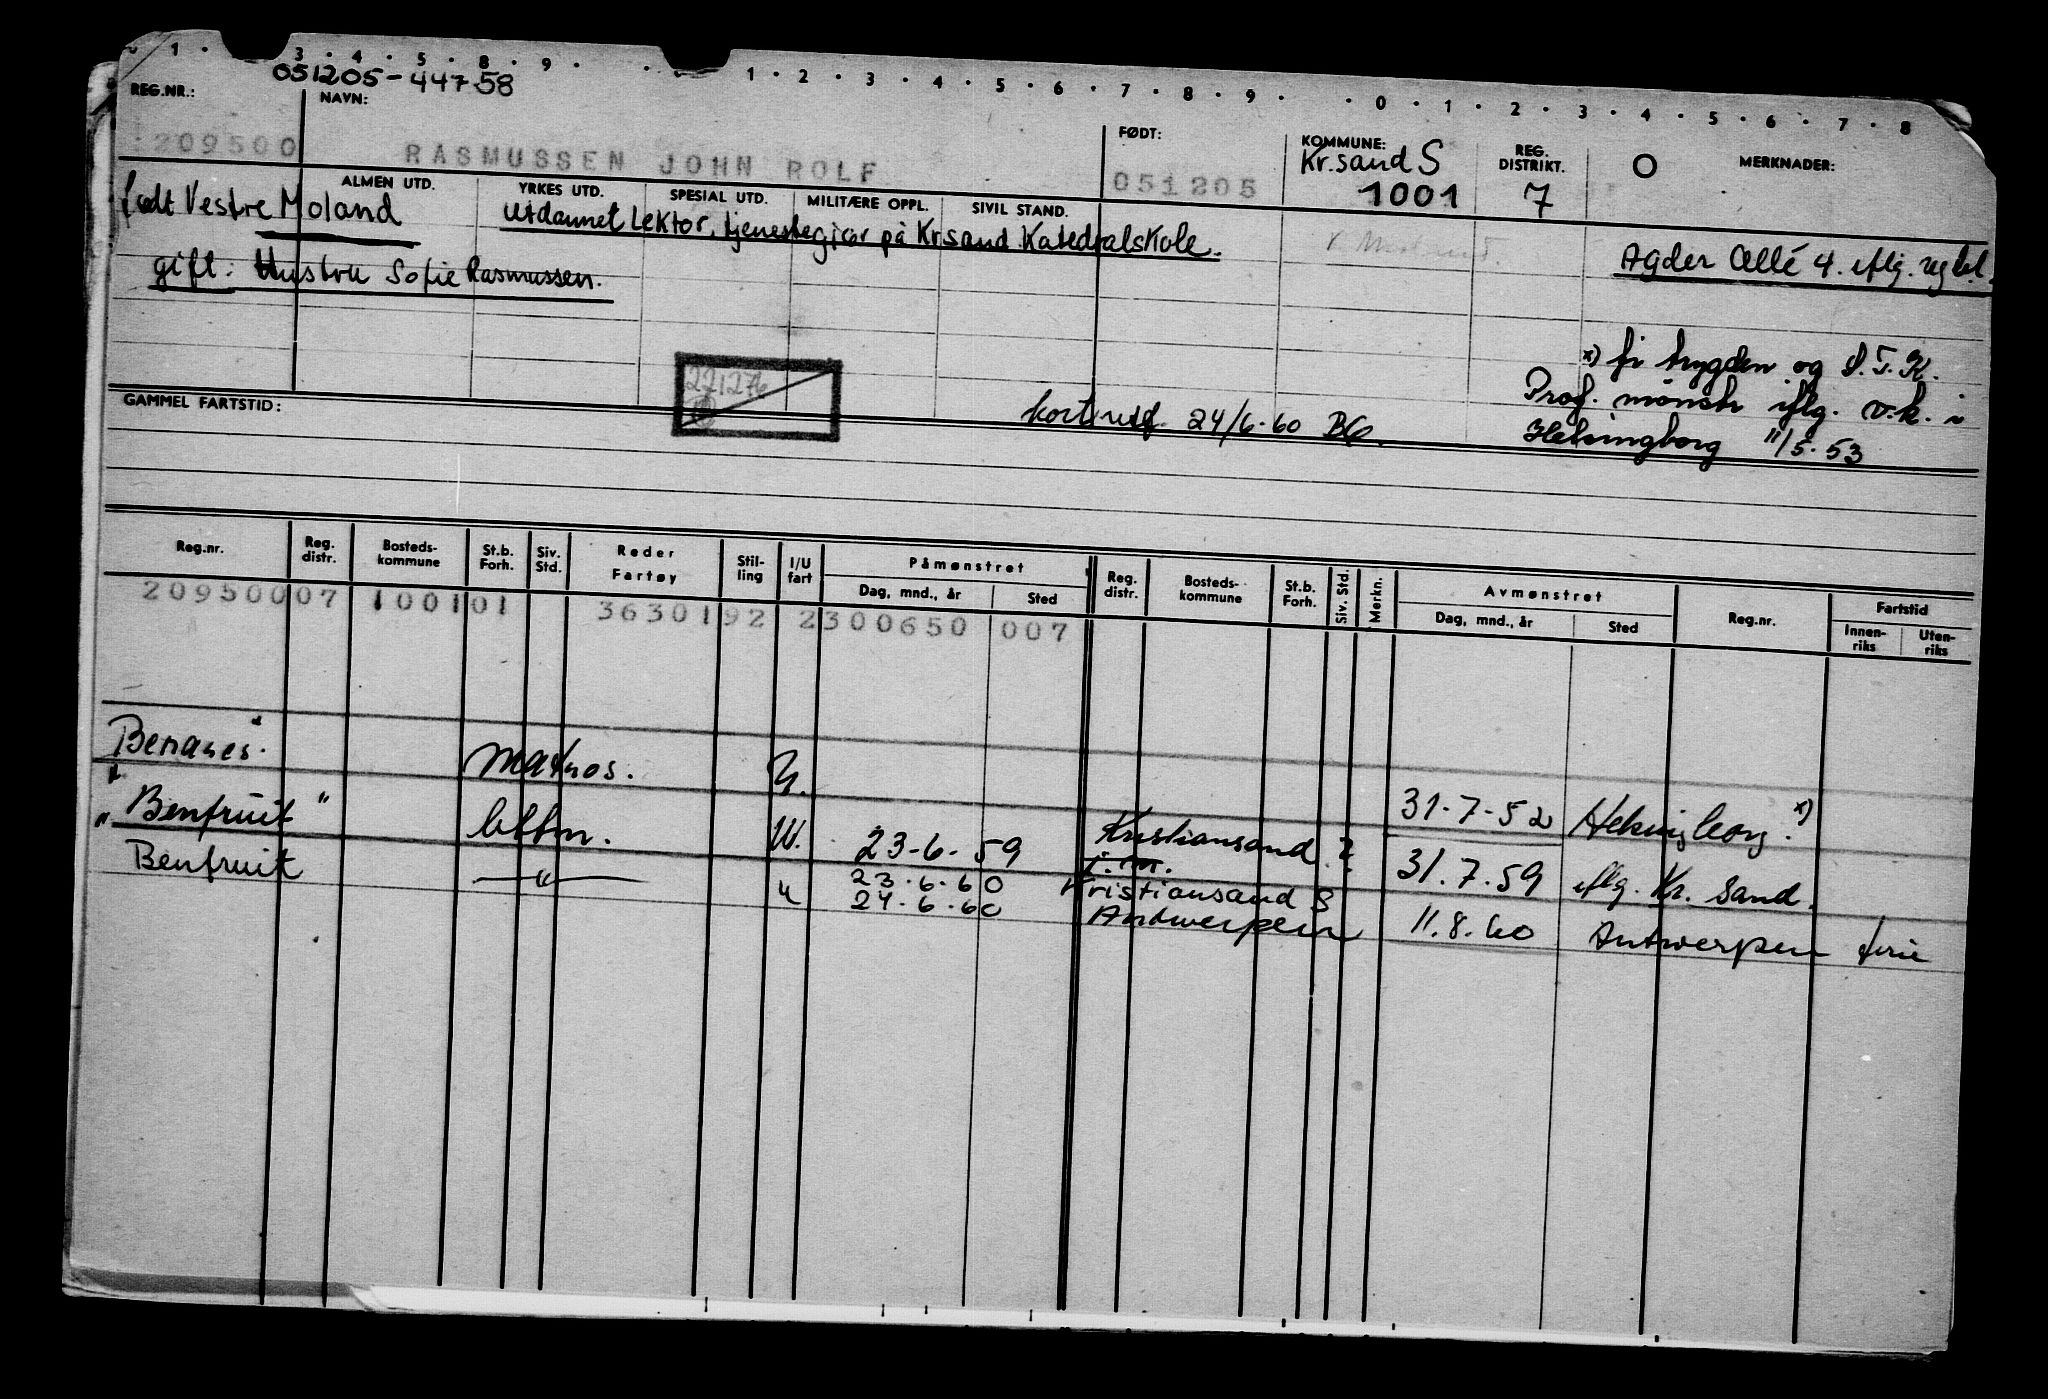 1 · 3 · 4 · 5 · 8 · 9 · · 1 · 2 · 3 · 4 · 5 · 6 · 7 · 8 · 9 · · 0 · 1 · 2 · 3 · 4 · 5 · 6 · 7 · 8
051205-44758
REG.NR.: NAVN: FØDT: KOMMUNE: REG. DISTRIKT. O MERKNADER:
209500 RASMUSSEN JOHN ROLF 051205 Kr.sand S 1001 7
ALMEN UTD. YRKES UTD. SPESIAL UTD. MILITÆRE OPPL. SIVIL STAND.
født Vestre Moland utdannet Lektor, tjenestegjør på Kr.sand Katedralskole. Agder Allé 4. iflg.
gift: Hustru Sofie Rasmussen.
x) fri trygden og S.T.K.
221276
Prof. mønstr iflg. v.k. i
GAMMEL FARTSTID: kort utf. 24/6.60 BG.
Helsingborg 11/5.53
Reg.nr. Reg. distr. Bosteds-kommune St.b. Forh. Siv. Std. Reder Fartøy Stil-ling I/U fart Påmønstret Dag, mnd., år Sted Reg. distr. Bosteds-kommune St.b. Forh. Siv. Std. Merkn. Avmønstret Dag, mnd., år Sted Reg.nr. Fartstid Innen-riks Uten-riks
209500 07 1001 01 3630192 2300650 007
Benares. matros. U. 31-7-52 Helsingborg. x)
"Benfruit" lettm. U. 23-6-59 Kristiansand 31.7.59 iflg. Kr. Sand.
"Benfruit —"— " 23.6.60 Kristiansand S
24.6.60 Antwerpen 11.8.60 Antwerpen ferie